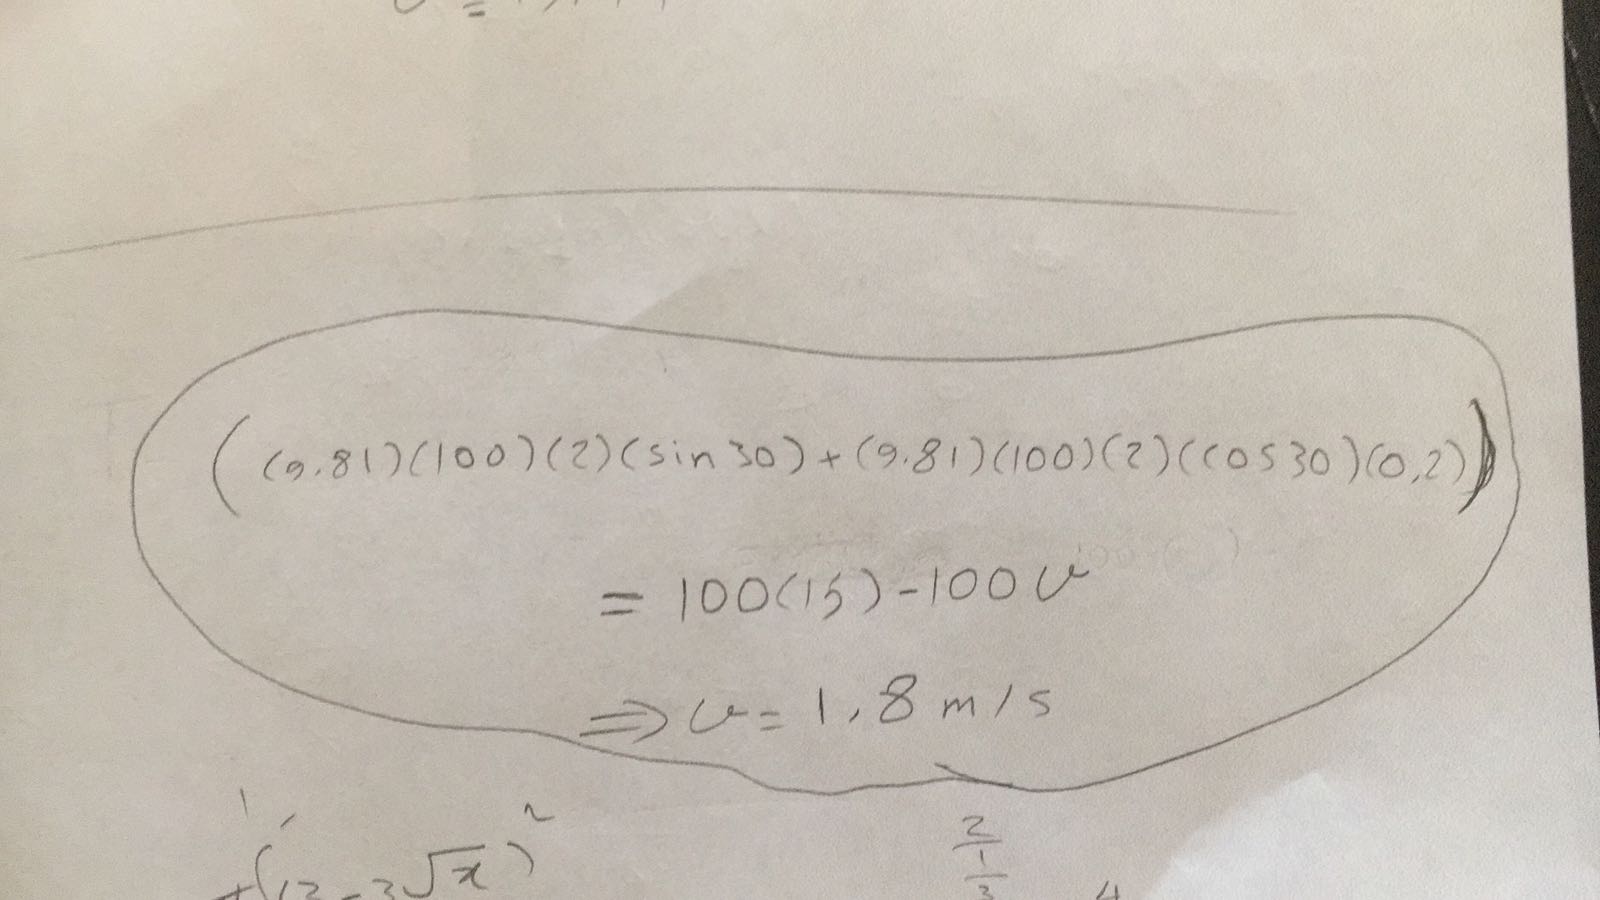 ((9.81)(100)(2)(sin30)+(9.81)(100)(2)(cos30)(0,2))
= 100(15)-100v
⇒ v= 1,8 m/s
2/1/3